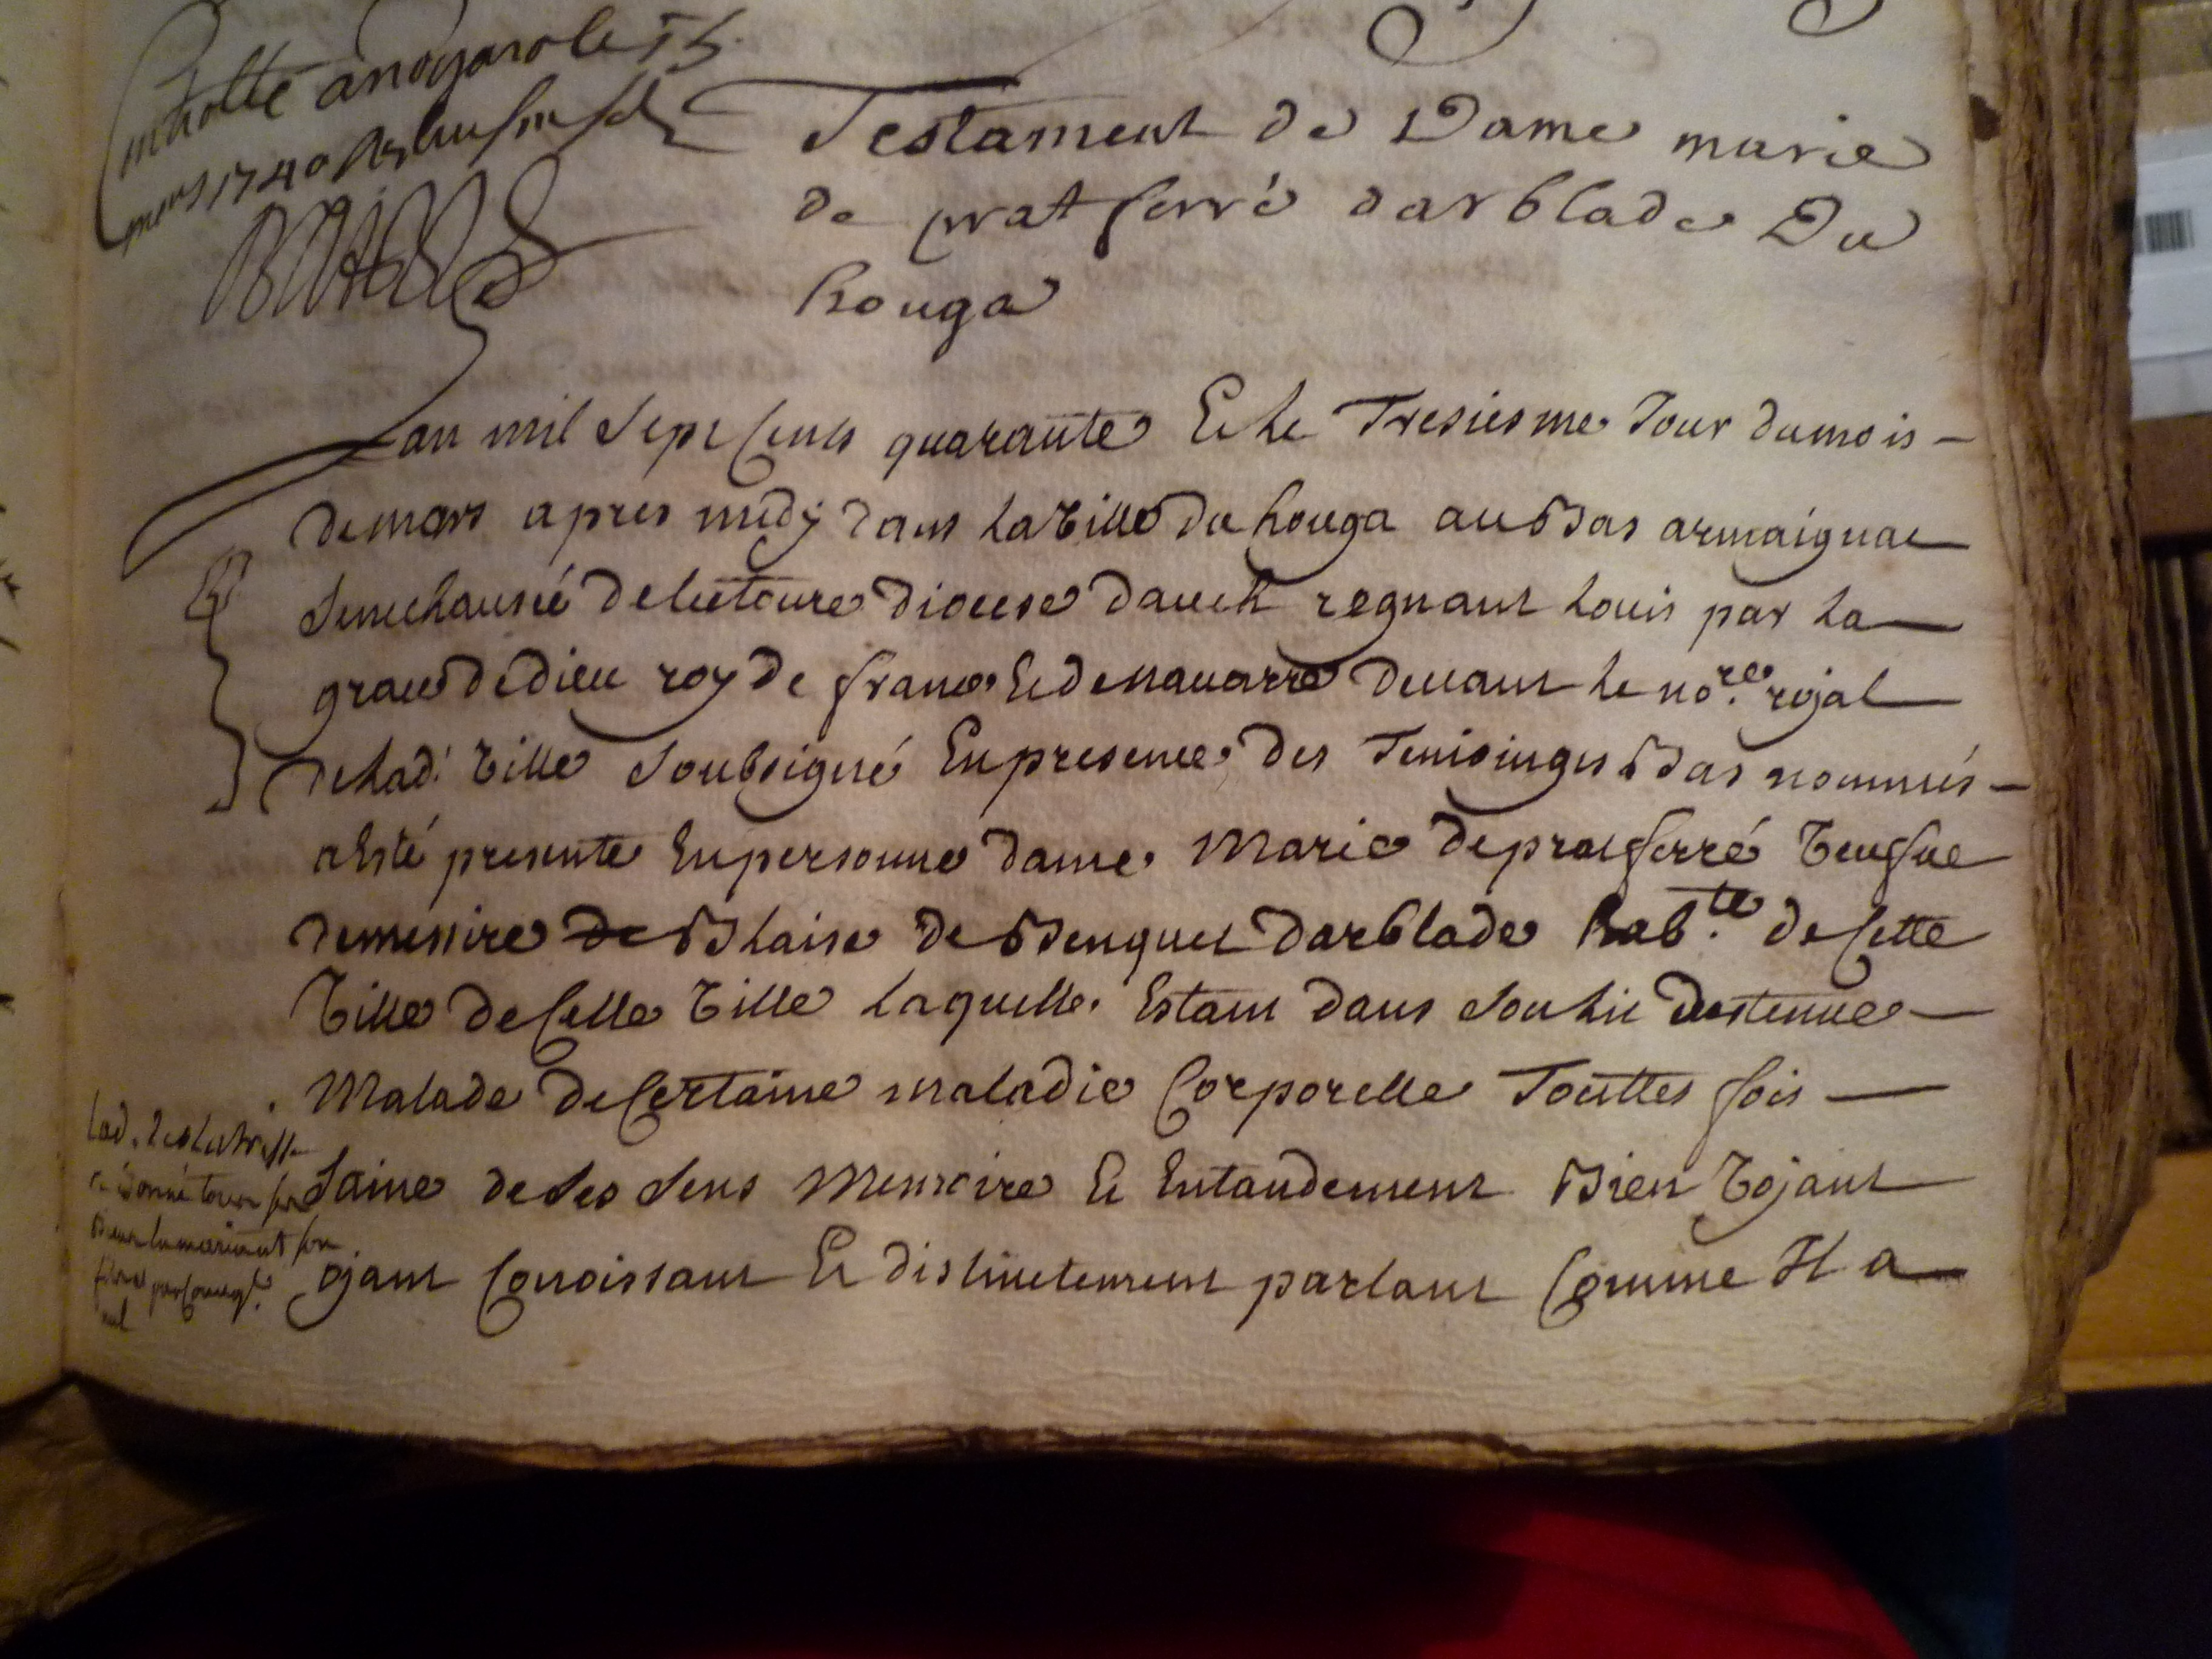 Controllé a nogaro le 15
mars 1740
Testament de Dame marie
de pratferré darblade Du
houga
Lan mil sept cents quarante Et le Tresiesme Jour dumois
demars apres midy dans la Ville du houga au Bas armaignac
Senechausée de lectoure diocese dauch regnant Louis par la
grace de dieu roy de france Et de nauarre deuant le no.re royal
de lad. Ville soubsigné En presence des Temoings Bas nommés
a Esté presente En personne dame Marie de pratferré Veufve
de messire de Blaise de Benquet darblade hab.te de cette
Ville de celle Ville laquelle Estant dans son lit destenue
Malade de certaine maladie Corporelle Touttes fois
Saine de ses sens Memoire Et Entandement Bien Vojant
ojant Conoissant Et distinctement parlant Comme Il a
lad. testatrisse
a donné tous ses
Biens en mariant son
fils
nul